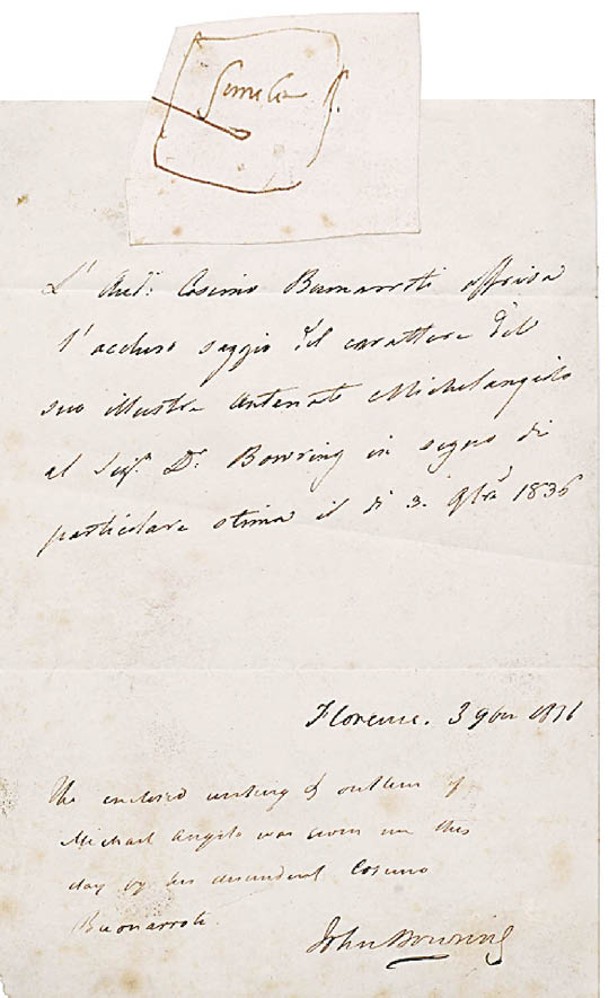 simile
L' Aud.: Cosimo Buonarroti offriva
l'accluso saggio del carattere del
suo illustre antenato Michelangelo
al Sig.r D.r Bowring in segno di
particolare stima il di 3. 9bre 1836
Florence. 3 9ber 1836
The enclosed writing & outline of
Michael Angelo was given me this
day by his descendant Cosimo
Buonarroti.
John Bowring